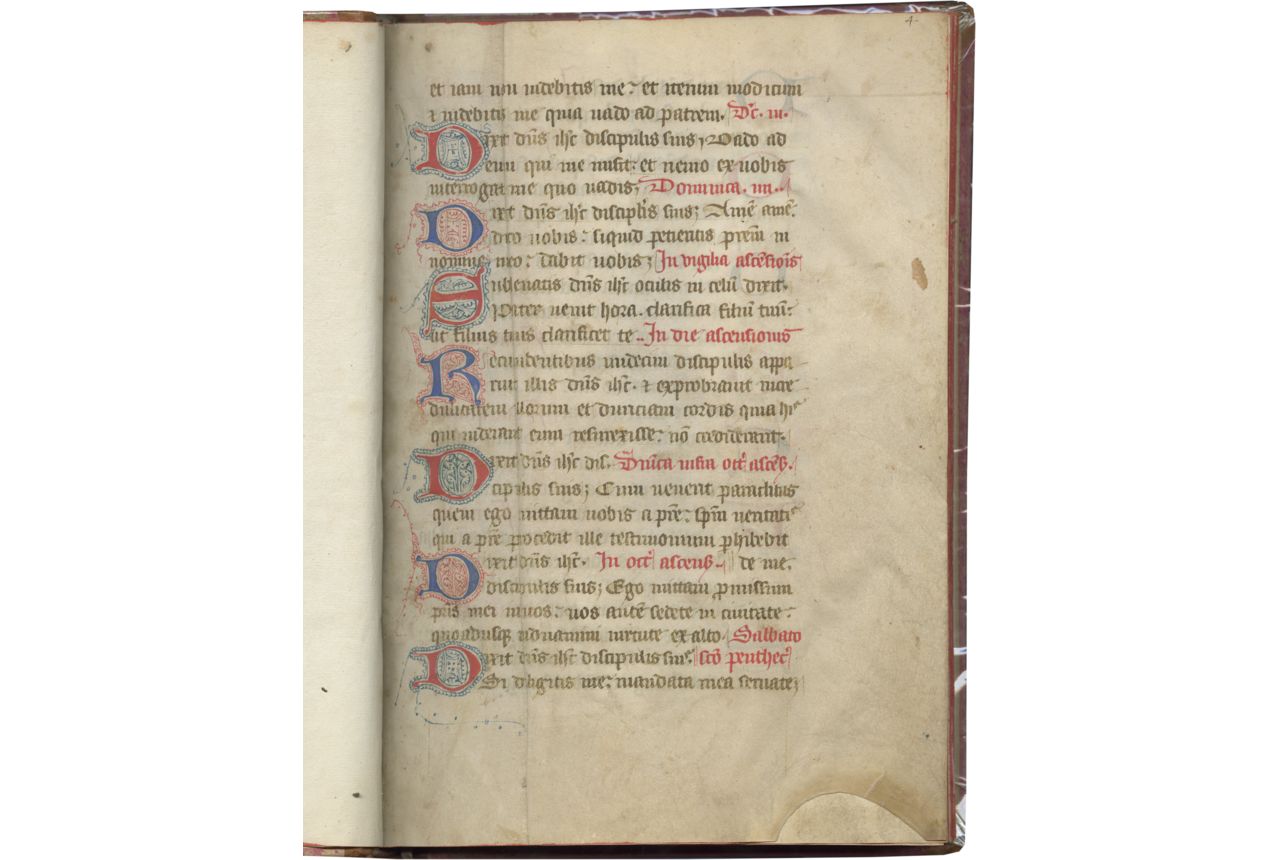 4
et iam non uidebitis me. et iterum modicum
⁊ uidebitis me quia uado ad patrem. Dc̄. iii.
Dixit dn̄s ih̄c discipulis suis; Uado ad
eum qui me misit. et nemo ex uobis
interrogat me quo uadis; Dominica. iiii.
Dixit dn̄s ih̄c discipl̄is suis; Amē amē.
dico uobis. siquid petieritis prem̄ in
nomine meo. dabit uobis; In vigilia ascēsiōis
Subleuatis dn̄s ih̄c oculis in celū dixit.
Pater uenit hora. clarifica filiū tuū.
ut filius tuus clarificet te. In die ascensionis
Recumbentibus undecim discipulis appa
ruit illis dn̄s ih̄c. ⁊ exprobrauit incre
dulitatem illorum et duriciam cordis quia hiis
qui uiderant eum resurrexisse. nō crediderant.
Dixit dn̄s ih̄c dis. Dn̄ica infra oct̄ ascēs.
cipulis suis; Cum uenerit paraclitus
quem ego mittam uobis a pr̄e. sp̄m ueritatis
qui a pr̄e procedit ille testimonium phibebit
Dixit dn̄s ih̄c. In oct̄ ascens. de me.
discipulis suis; Ego mittam promissum
pr̄is mei in uos. uos autē sedete in ciuitate.
quoadusq induamini uirtute ex alto. Sabbato
Dixit dn̄s ih̄c discipulis suis. sc̄o penthec̄
Si diligitis me. mandata mea seruate;